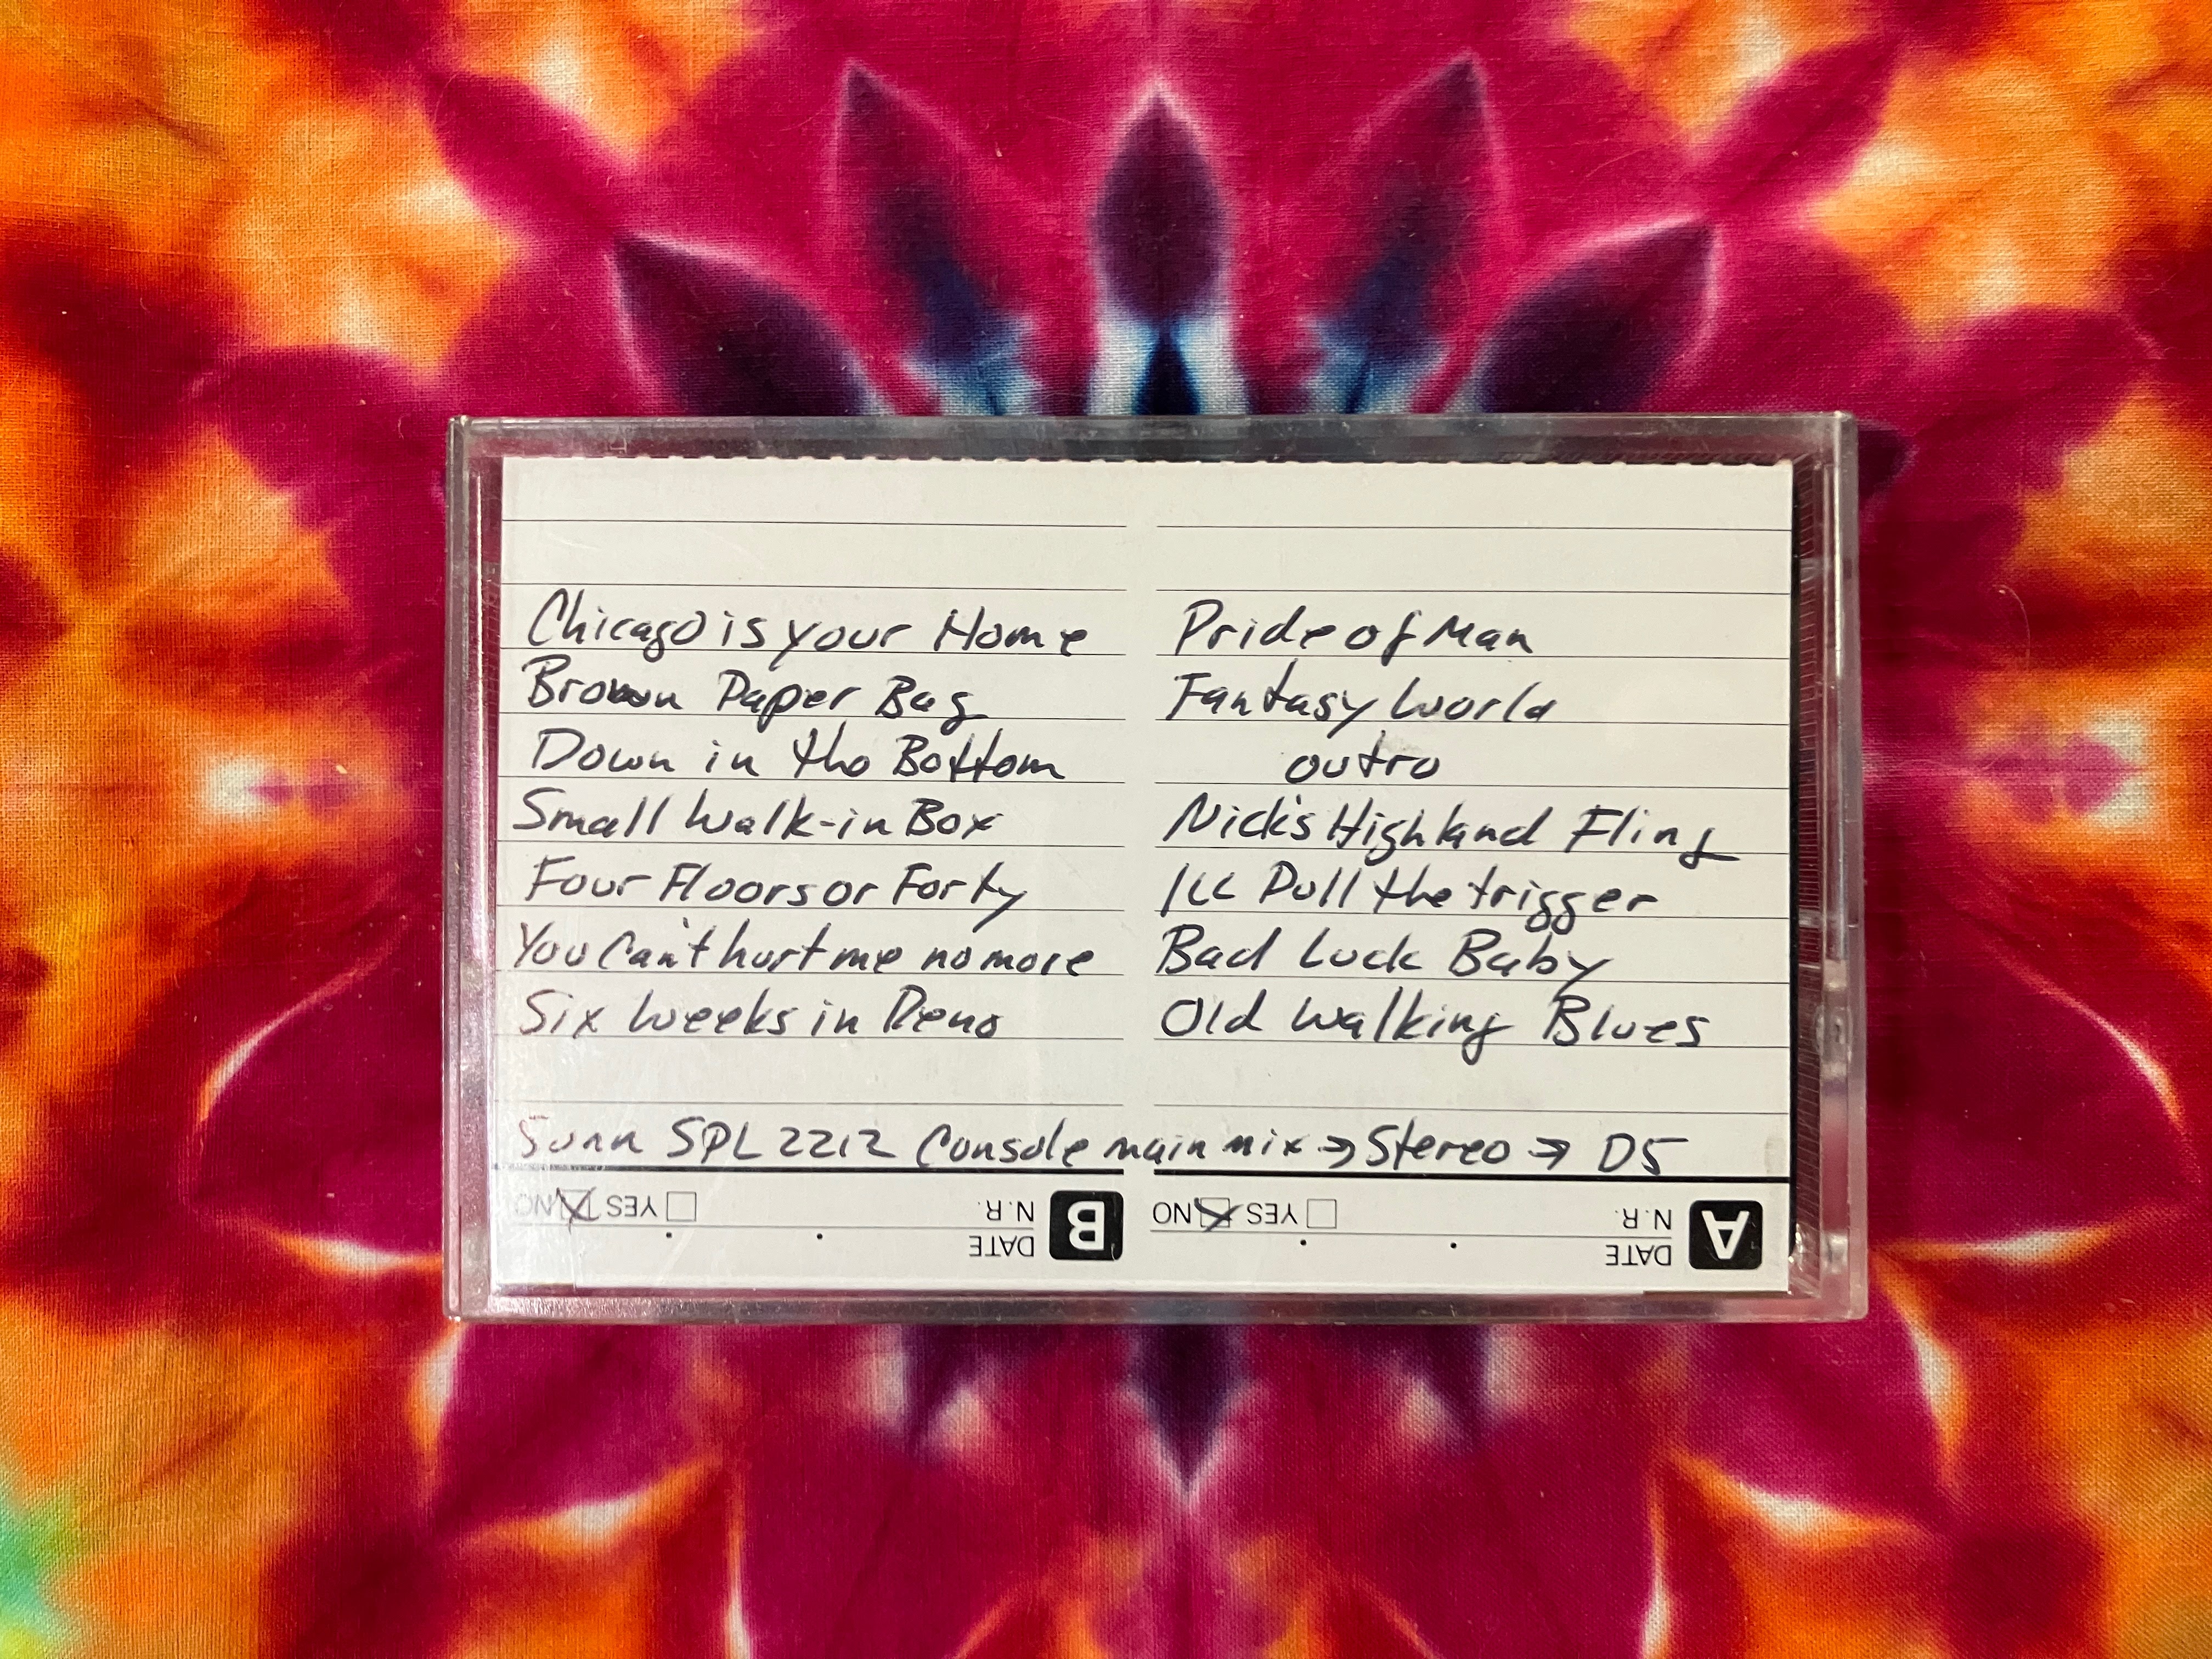 Chicago is your Home
Brown Paper Bag
Down in tho Bottom
Small Walk-in Box
Four Floors or Forty
You Can't hurt me no more
Six Weeks in Reno
Pride of Man
Fantasy World
outro
Nick's Highland Fling
Ill Pull the trigger
Bad Luck Baby
Old Walking Blues
Sunn SPL 2212 Console main mix → Stereo → D5
A
DATE
N.R. YES NO
B
DATE
N.R. YES NO